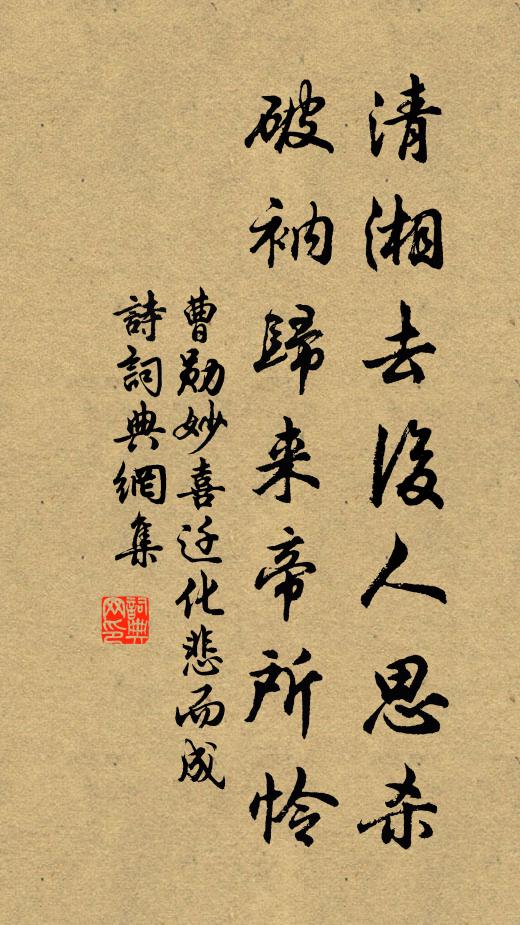 清湘去後人思杀
破衲歸来帝所怜
曹勋妙喜迁化悲而成
詩詞典網集
詞典网印